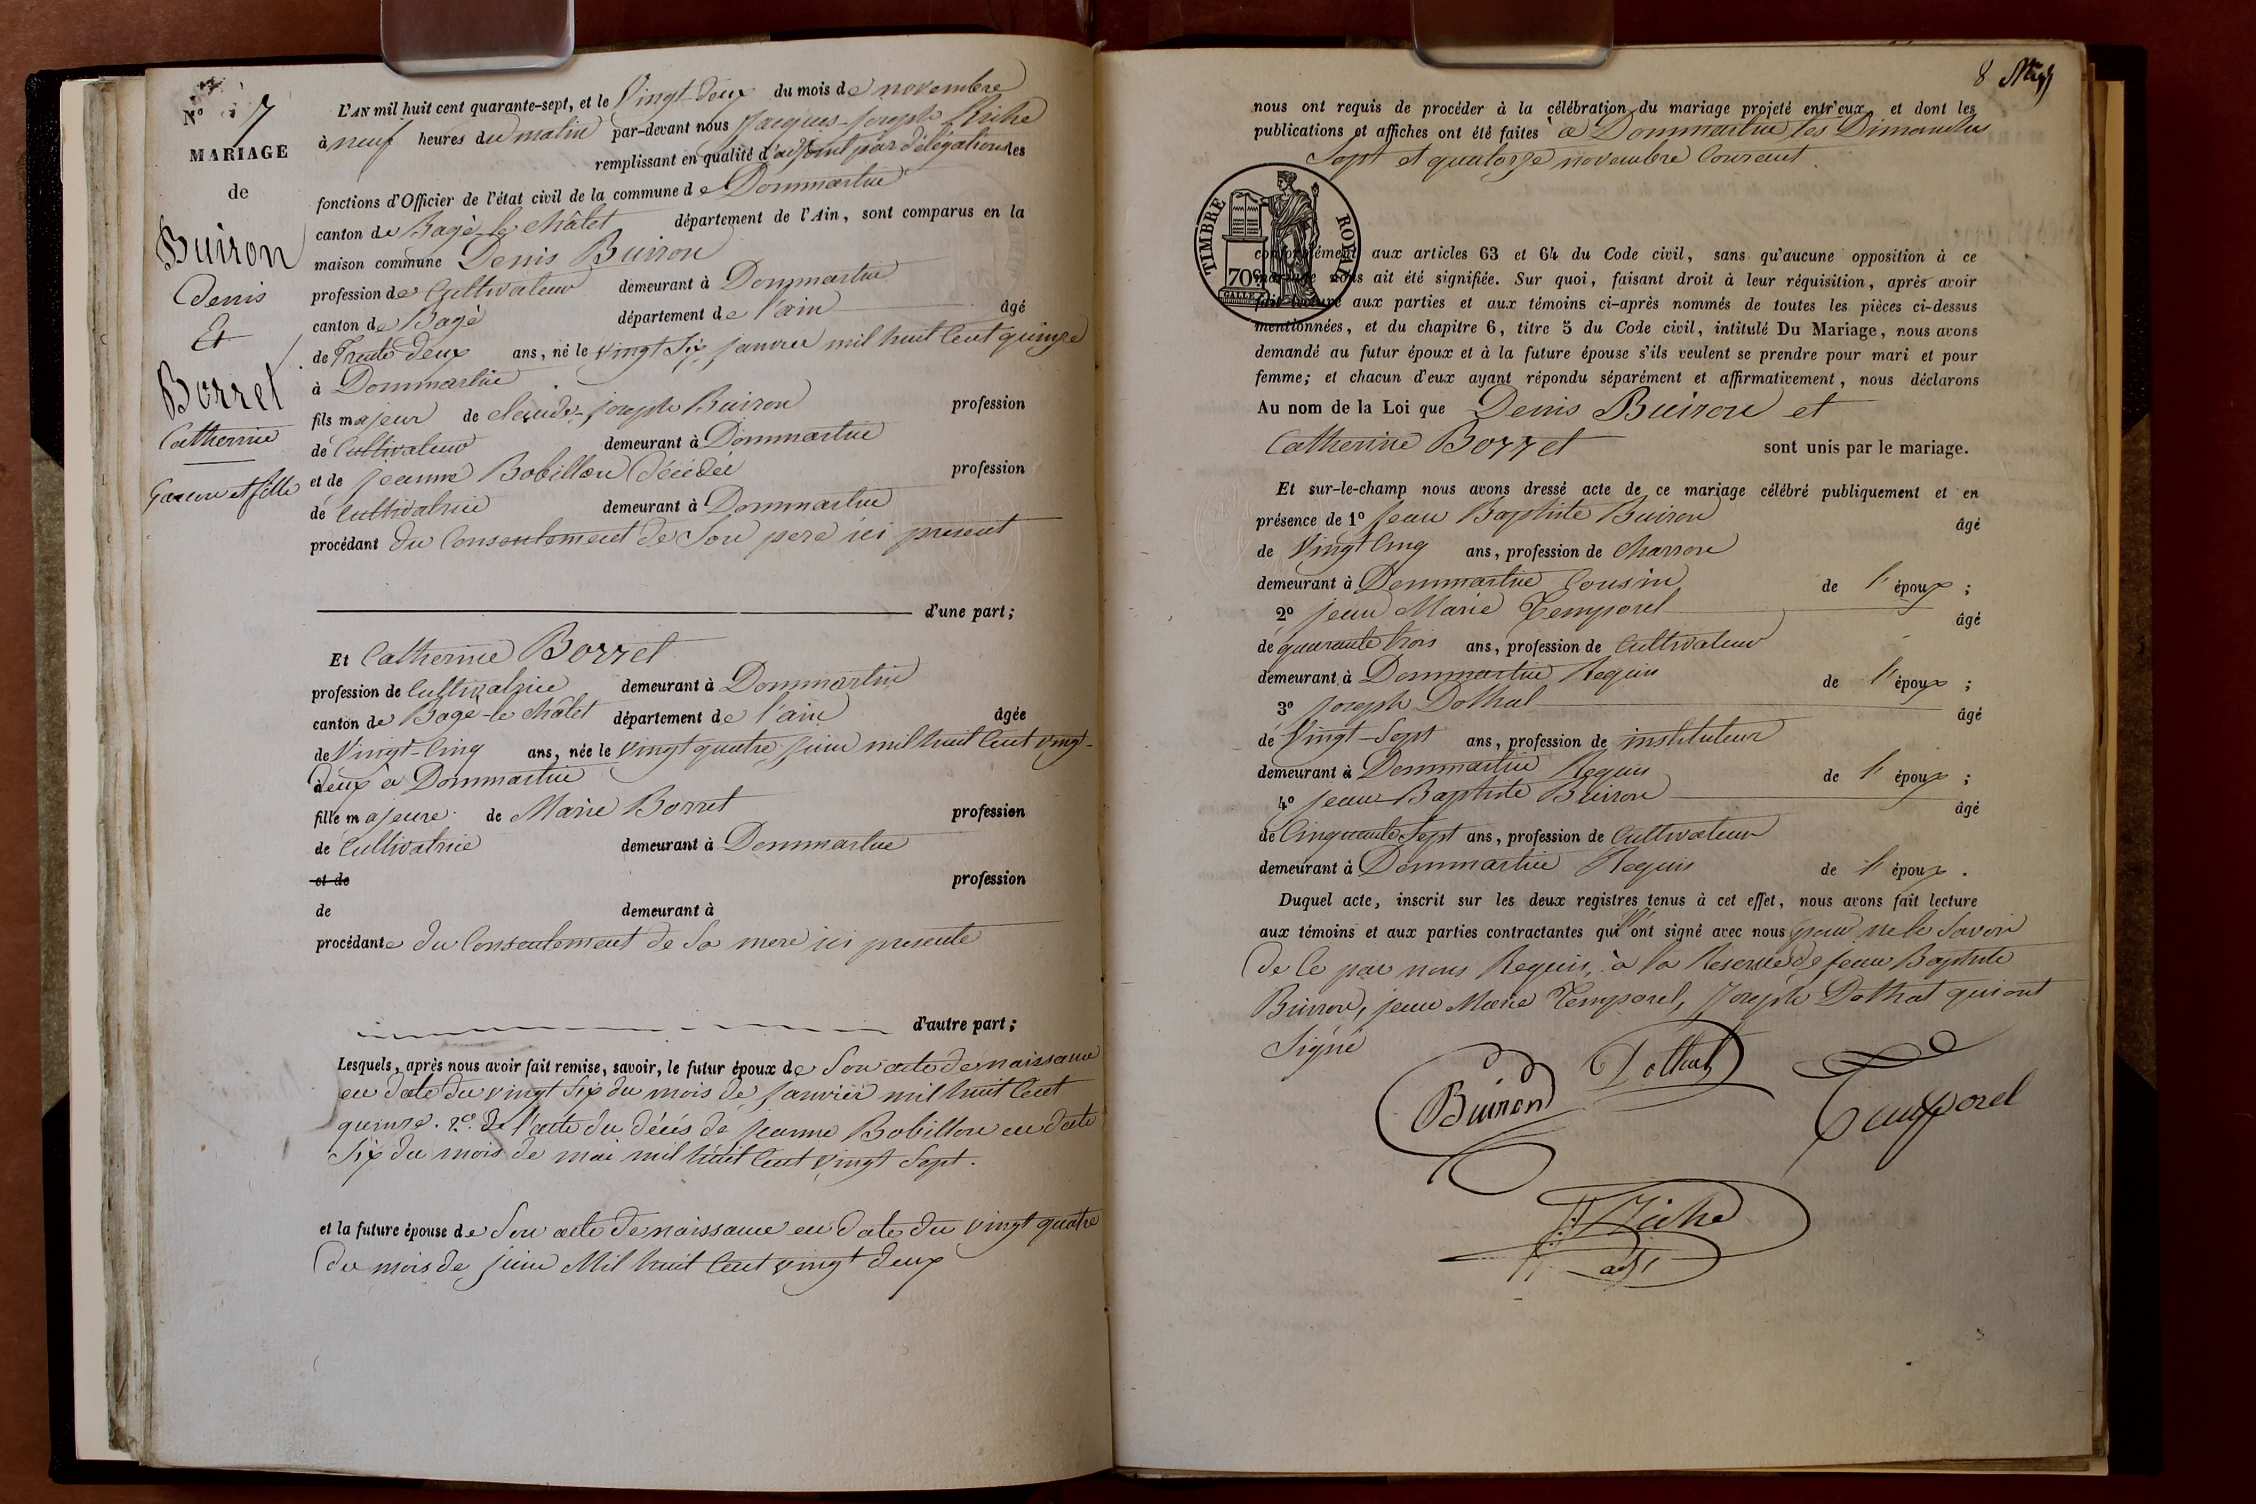 N° 7
MARIAGE
de
Buiron
Denis
Et
Borret
Catherine
Garcon et fille
L'AN mil huit cent quarante-sept, et le Vingt-deux du mois de novembre
à neuf heures du matin par-devant nous Jacques-Joseph Riche
remplissant en qualité d'adjoint par délégation les
fonctions d'Officier de l'état civil de la commune de Dommartin
canton de Bagé-le châtel département de l'Ain, sont comparus en la
maison commune Denis Buiron
profession de Cultivateur demeurant à Dommartin
canton de Bagé département de l'ain âgé
de Trente deux ans, né le vingt Six janvier mil huit Cent quinze
à Dommartin
fils majeur de claude-joseph Buiron profession
de Cultivateur demeurant à Dommartin
et de jeanne Bobillon décédée profession
de Cultivatrice demeurant à Dommartin
procédant du Consentement de Son pere ici present
d'une part;
Et Catherine Borret
profession de Cultivatrice demeurant à Dommartin
canton de Bagé-le châtel département de l'ain âgée
de Vingt-Cinq ans, née le vingt quatre juin mil huit Cent vingt-
deux à Dommartin
fille majeure de Marie Borret profession
de Cultivatrice demeurant à Dommartin
et de profession
de demeurant à
procédante du Consentement de Sa mere ici presente
d'autre part;
Lesquels, après nous avoir fait remise, savoir, le futur époux de Son acte de naissance
en date du vingt Six du mois de janvier mil huit Cent
quinze. 2° de l'acte du décés de jeanne Bobillon en date
Six du mois de mai mil huit Cent vingt Sept.
et la future épouse de Son acte de naissance en date du vingt quatre
du mois de juin Mil huit Cent vingt deux
8
nous ont requis de procéder à la célébration du mariage projeté entr'eux, et dont les
publications et affiches ont été faites à Dommartin les Dimanches
Sept et quatorze novembre Courant.
TIMBRE ROYAL
70c
conformément aux articles 63 et 64 du Code civil, sans qu'aucune opposition à ce
mariage nous ait été signifiée. Sur quoi, faisant droit à leur réquisition, après avoir
fait lecture aux parties et aux témoins ci-après nommés de toutes les pièces ci-dessus
mentionnées, et du chapitre 6, titre 5 du Code civil, intitulé Du Mariage, nous avons
demandé au futur époux et à la future épouse s'ils veulent se prendre pour mari et pour
femme; et chacun d'eux ayant répondu séparément et affirmativement, nous déclarons
Au nom de la Loi que Denis Buiron et
Catherine Borret sont unis par le mariage.
Et sur-le-champ nous avons dressé acte de ce mariage célébré publiquement et en
présence de 1° Jean Baptiste Buiron âgé
de Vingt Cinq ans, profession de charron
demeurant à Dommartin Cousin de l'époux;
2° jean Marie Temporel âgé
de quarante trois ans, profession de Cultivateur
demeurant à Dommartin Requis de l'époux;
3° joseph Dothal âgé
de Vingt-Sept ans, profession de instituteur
demeurant à Dommartin Requis de l'époux;
4° jean-Baptiste Buiron âgé
de Cinquante Sept ans, profession de Cultivateur
demeurant à Dommartin Requis de l'époux.
Duquel acte, inscrit sur les deux registres tenus à cet effet, nous avons fait lecture
aux témoins et aux parties contractantes qui n'ont signé avec nous pour ne le Savoir
de ce par nous Requis, à la Reserve de jean Baptiste
Buiron, jean Marie Temporel, Joseph Dothal qui ont
Signé
Buiron Dothal Temporel
J. J. Riche
adj